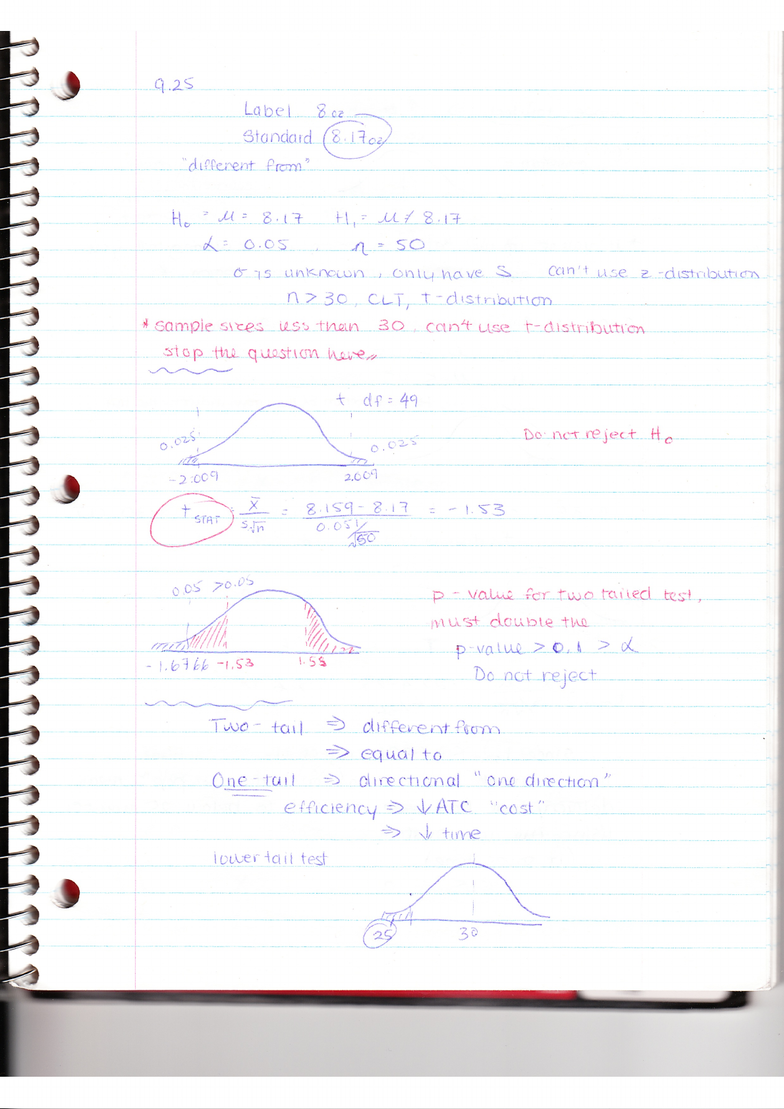 9.25
Label 8 oz
Standard 8.17 oz
"different from"
H₀ = μ = 8.17 H₁ = μ ≠ 8.17
α = 0.05 , n = 50
σ is unknown, only have S can't use z-distribution
n > 30, CLT, t-distribution
* sample sizes less than 30, can't use t-distribution
stop the question here
t df = 49
0.025 0.025 Do not reject H₀
-2.009 2.009
t STAT = x̄ / s√n = 8.159 - 8.17 / 0.051/√50 = -1.53
0.05 >0.05
p-value for two tailed test,
must double the
p-value > 0.1 > α
-1.6766 -1.53 1.53
Do not reject
Two-tail ⇒ different from
⇒ equal to
One-tail ⇒ directional "one direction"
efficiency ⇒ ↓ ATC "cost"
⇒ ↓ time
lower tail test
25 30